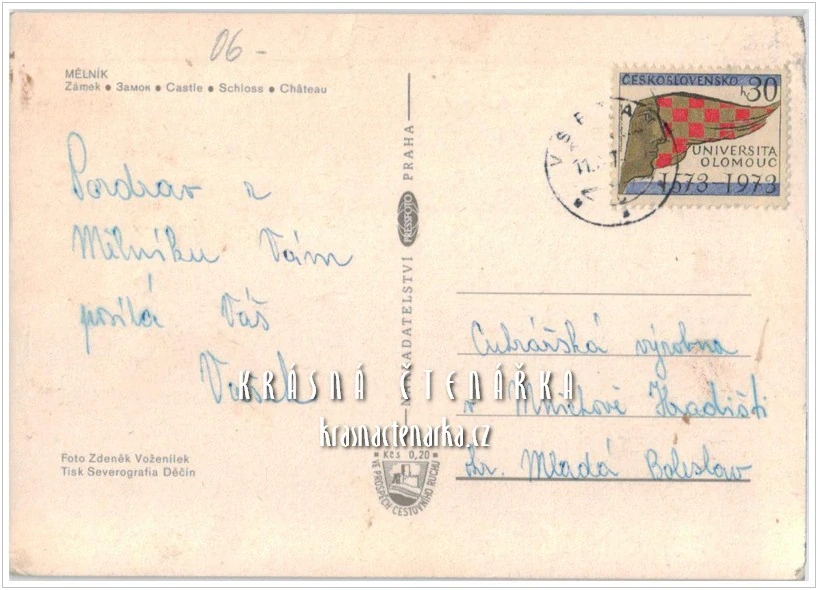 06 -
MĚLNÍK
Zámek • Замок • Castle • Schloss • Château
Pozdrav z
Mělníku Vám
posílá Váš
Foto Zdeněk Voženílek
Tisk Severografia Děčín
NAKLADATELSTVÍ PRESSFOTO PRAHA
Kčs 0,20
VE PROSPĚCH CESTOVNÍHO RUCHU
ČESKOSLOVENSKO
30 h
UNIVERSITA
OLOMOUC
1573-1973
Cukrářská výrobna
v Mnichově Hradišti
okr. Mladá Boleslav
KRÁSNÁ ČTENÁŘKA
krasnactenarka.cz